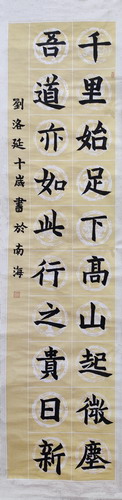 千里始足下高山起微塵
吾道亦如此行之貴日新
劉洛延十歲書於南海